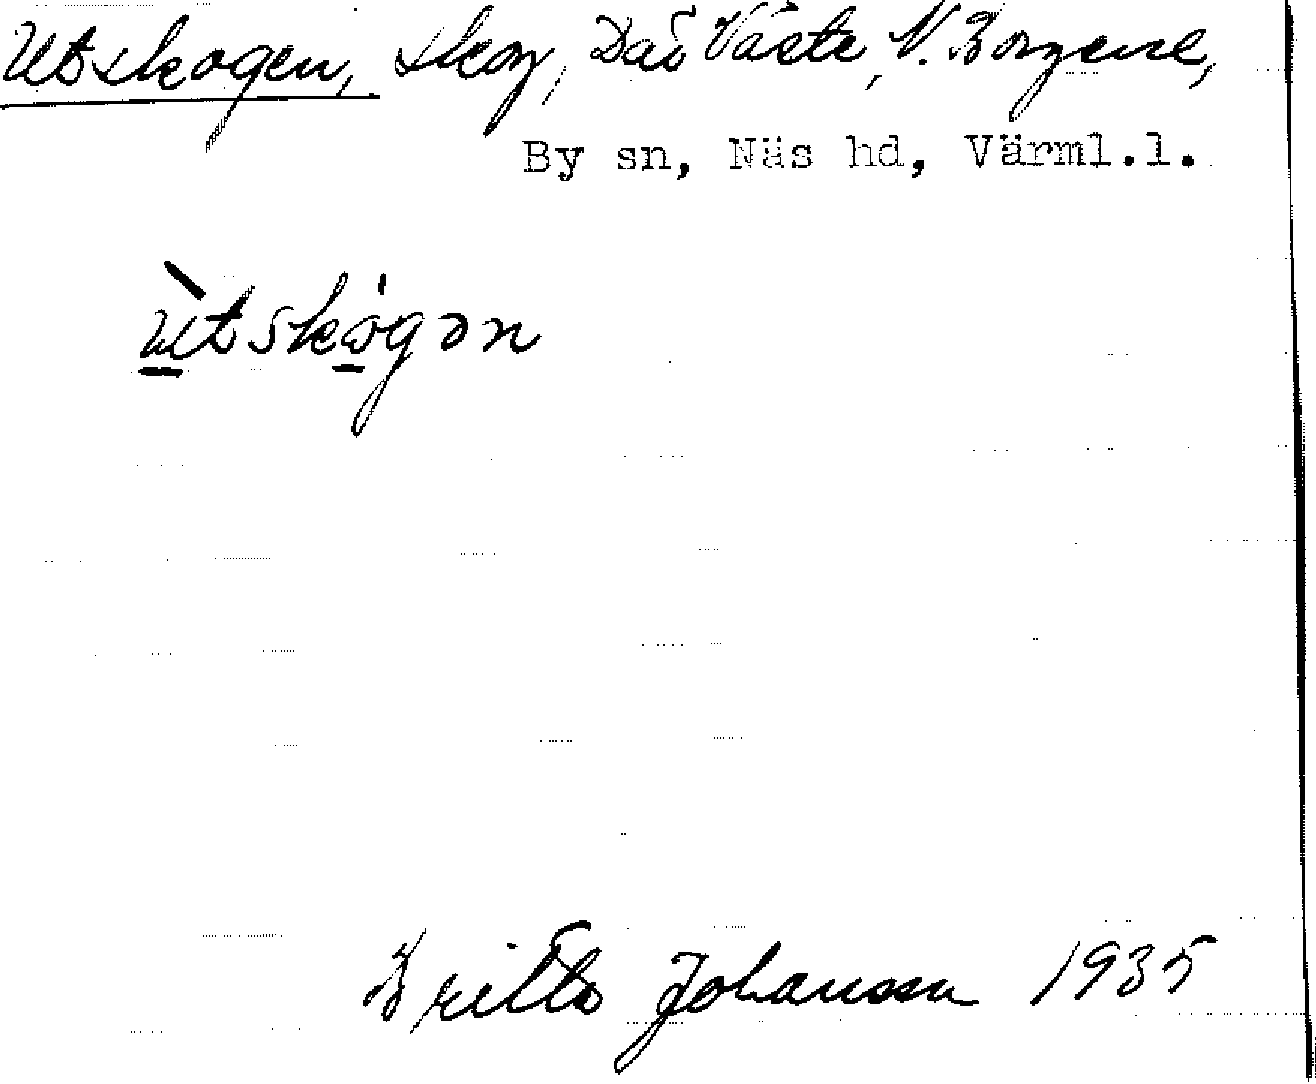 Utskogen, skog, Där Väste, N. Borgene,
By sn, Näs hd, Värml.l.
ùtskògən
Britta Johansson 1935